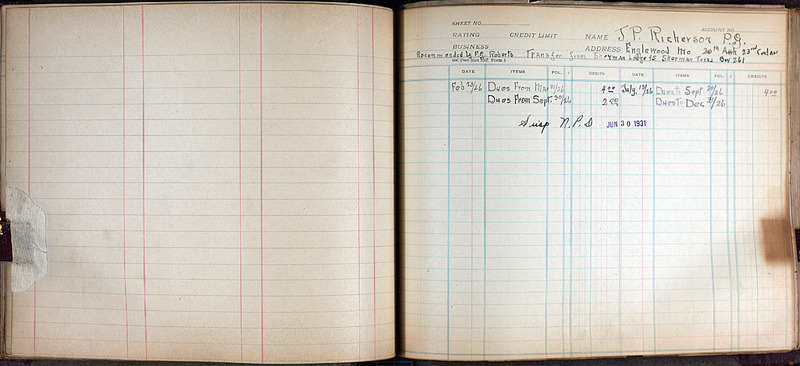 SHEET NO.
ACCOUNT NO.
RATING CREDIT LIMIT NAME J.P. Richerson P.G.
BUSINESS ADDRESS Englewood Mo 20th Ask 23rd Center
Recommended by P.G. Roberts Transfer from Sherman Lodge 15 Sherman Texas Box 261
DATE ITEMS FOL. DEBITS DATE ITEMS FOL. CREDITS
Feb 23/26 Dues From Mar 31/26 4 00 July 13/26 Dues to Sept 30/26 4 00
Dues From Sept. 30/26 2 00 Dues to Dec 31/26
Susp N.P.D JUN 30 1931